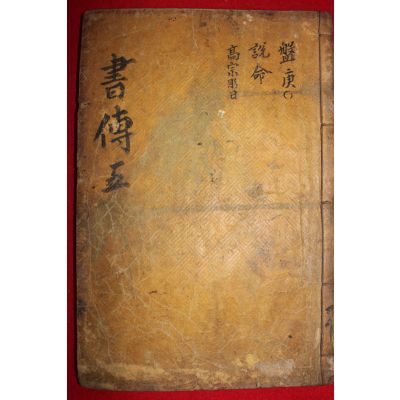 盤庚○
說命
高宗肜日
書傳 五